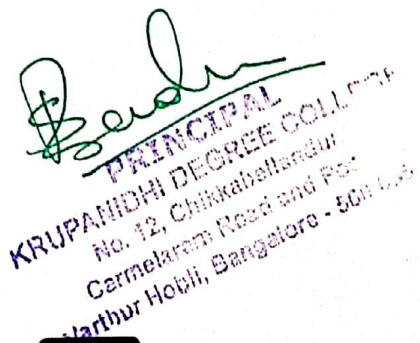 PRINCIPAL
KRUPANIDHI DEGREE COLLEGE
No. 12, Chikkabellandur,
Carmelaram Road and Post
Varthur Hobli, Bangalore -